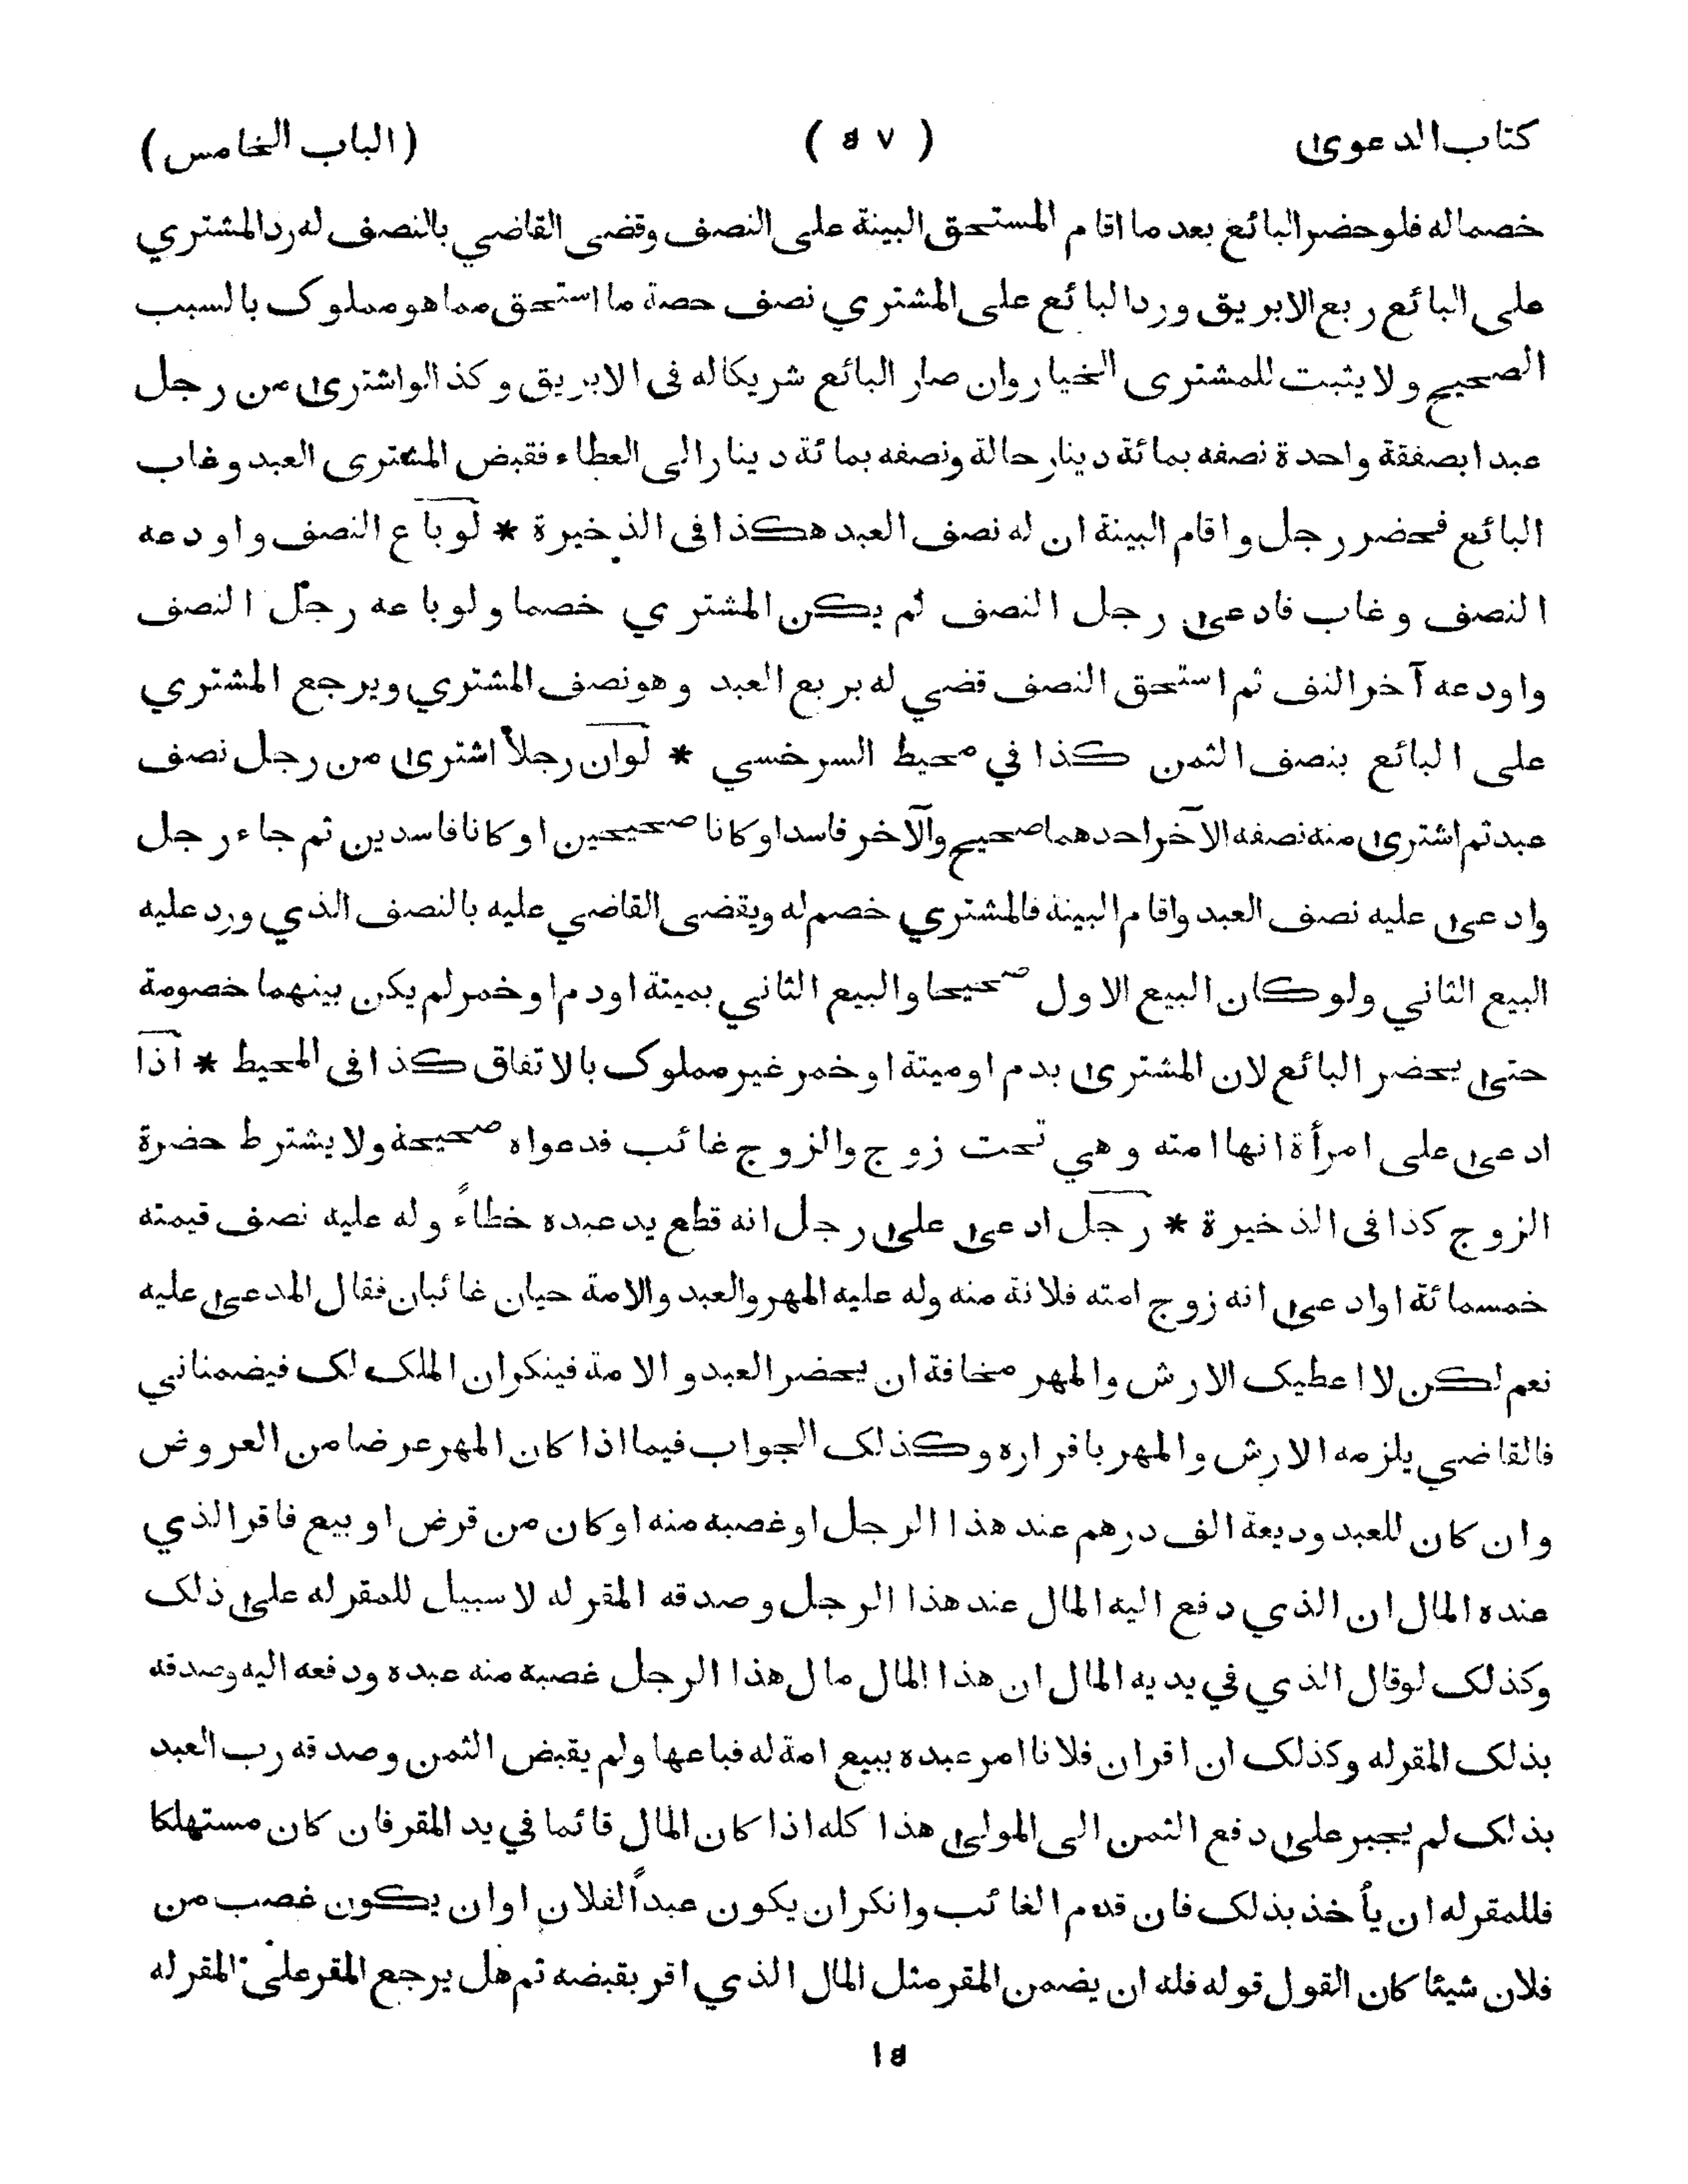 كتاب الدعوى ( ٥٧ ) (الباب الخامس)
خصما له فلو حضر البائع بعد ما اقام المستحق البينة على النصف وقضى القاضي بالنصف له رد المشتري
على البائع ربع الابريق ورد البائع على المشتري نصف حصة ما استحق مما هو مملوك بالسبب
الصحيح ولا يثبت للمشترى الخيار وان صار البائع شريكا له فى الابريق وكذا لو اشترى من رجل
عبدا بصفقة واحدة نصفه بمائة دينار حالة ونصفه بمائة دينار الى العطاء فقبض المشترى العبد وغاب
البائع فحضر رجل واقام البينة ان له نصف العبد هكذا فى الذخيرة * لو باع النصف واودعه
النصف وغاب فادعى رجل النصف لم يكن المشتري خصما ولو باعه رجل النصف
واودعه آخر النف ثم استحق النصف قضي له بربع العبد وهو نصف المشتري ويرجع المشتري
على البائع بنصف الثمن كذا في محيط السرخسي * لو ان رجلا اشترى من رجل نصف
عبد ثم اشترى منه نصفه الآخر احدهما صحيح والآخر فاسد او كانا صحيحين او كانا فاسدين ثم جاء رجل
وادعى عليه نصف العبد واقام البينة فالمشتري خصم له ويقضى القاضي عليه بالنصف الذي ورد عليه
البيع الثاني ولو كان البيع الاول صحيحا والبيع الثاني بميتة او دم او خمر لم يكن بينهما خصومة
حتى يحضر البائع لان المشترى بدم او ميتة او خمر غير مملوك بالاتفاق كذا فى المحيط * اذا
ادعى على امرأة انها امته وهي تحت زوج والزوج غائب فدعواه صحيحة ولا يشترط حضرة
الزوج كذا فى الذخيرة * رجل ادعى على رجل انه قطع يد عبده خطاءً وله عليه نصف قيمته
خمسمائة او ادعى انه زوج امته فلانة منه وله عليه المهر والعبد والامة حيان غائبان فقال المدعى عليه
نعم لكن لا اعطيك الارش والمهر مخافة ان يحضر العبد و الامة فينكر ان الملك لك فيضمناني
فالقاضي يلزمه الارش والمهر باقراره وكذلك الجواب فيما اذا كان المهر عرضا من العروض
وان كان للعبد وديعة الف درهم عند هذا الرجل او غصبه منه او كان من قرض او بيع فاقر الذي
عنده المال ان الذي دفع اليه المال عند هذا الرجل وصدقه المقر له لا سبيل للمقر له على ذلك
وكذلك لو قال الذي في يديه المال ان هذا المال مال هذا الرجل غصبه منه عبده ودفعه اليه وصدقه
بذلك المقر له وكذلك ان اقر ان فلانا امر عبده ببيع امة له فباعها ولم يقبض الثمن وصدقه رب العبد
بذلك لم يجبر على دفع الثمن الى المولى هذا كله اذا كان المال قائما في يد المقر فان كان مستهلكا
فللمقر له ان يأخذ بذلك فان قدم الغائب وانكر ان يكون عبداً لفلان او ان يكون غصب من
فلان شيئا كان القول قوله فله ان يضمن المقر مثل المال الذي اقر بقبضه ثم هل يرجع المقر على المقر له
١٥